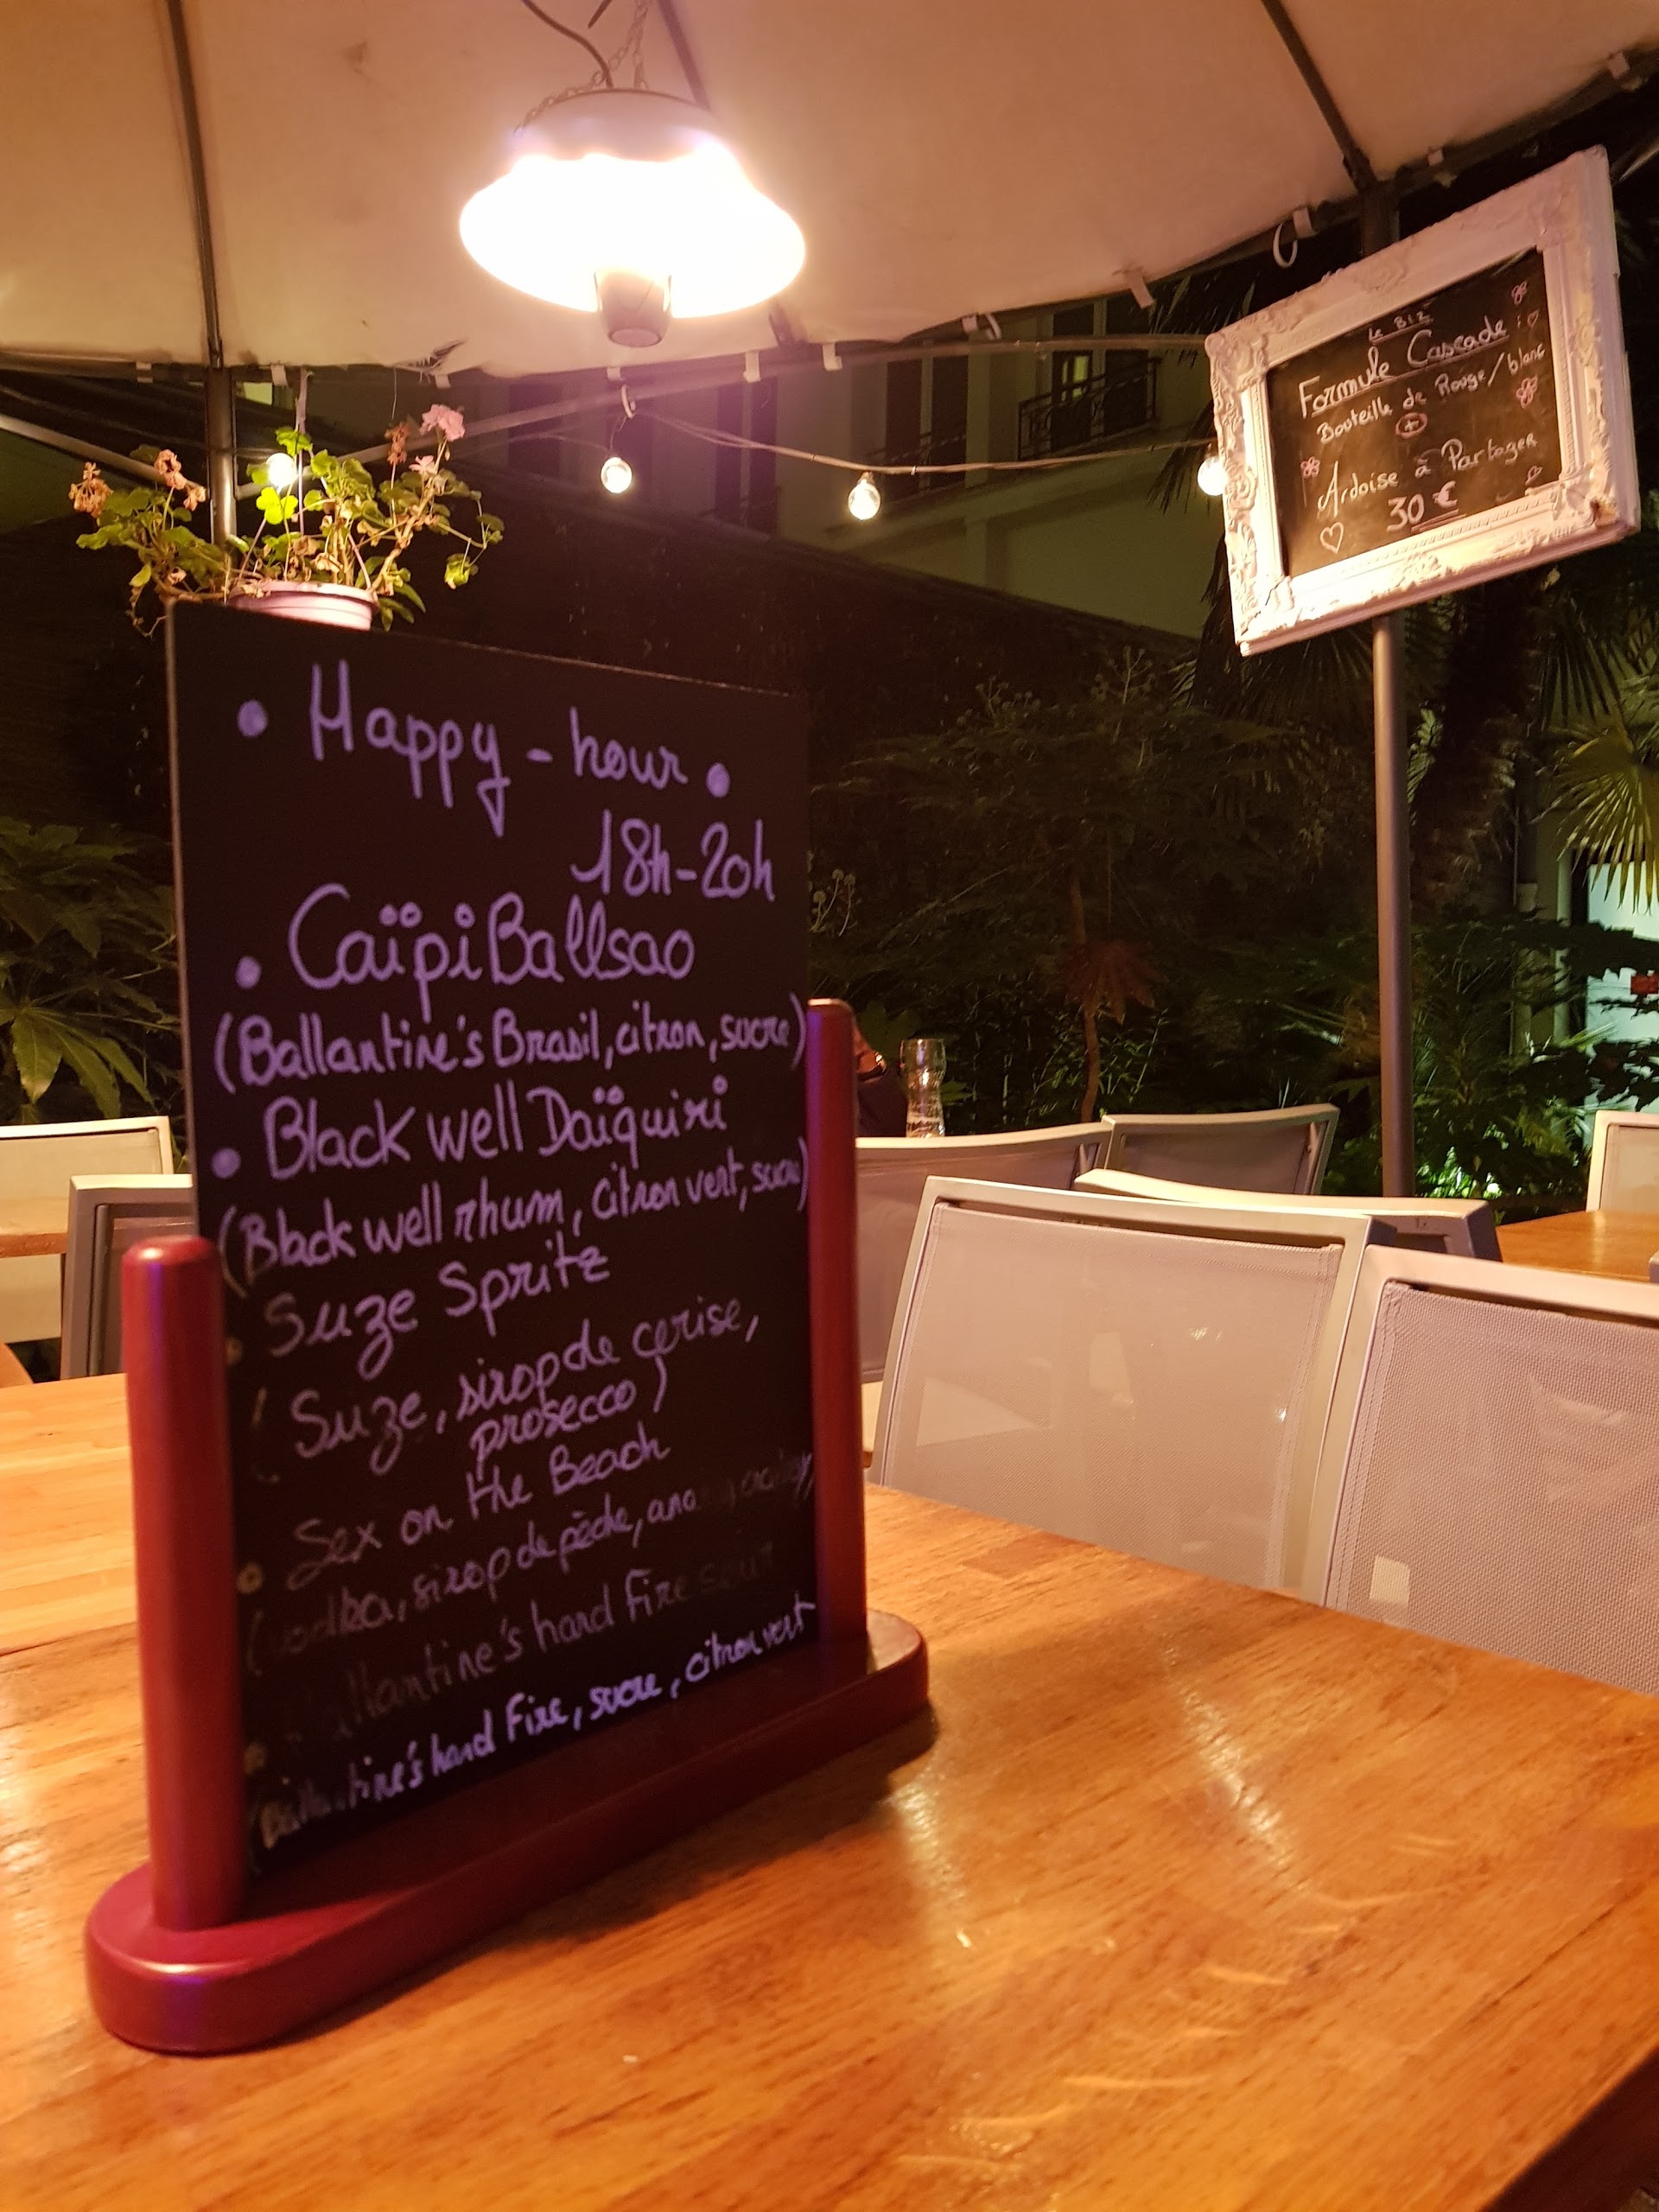 • Happy - hour •
18h-20h
• CaïpiBallsao
(Ballantine's Brasil, citron, sucre)
• Black well Daïquiri
(Black well rhum, citron vert, sucre)
• Suze Spritz
(Suze, sirop de cerise,
prosecco)
• Sex on the Beach
(vodka, sirop de pèche,
• Ballantine's hard Fire sour
(Ballantine's hard Fire, sucre, citron vert
Le BIZ
Formule Cascade :
Bouteille de Rouge/blanc
+
Ardoise à Partager
30 €